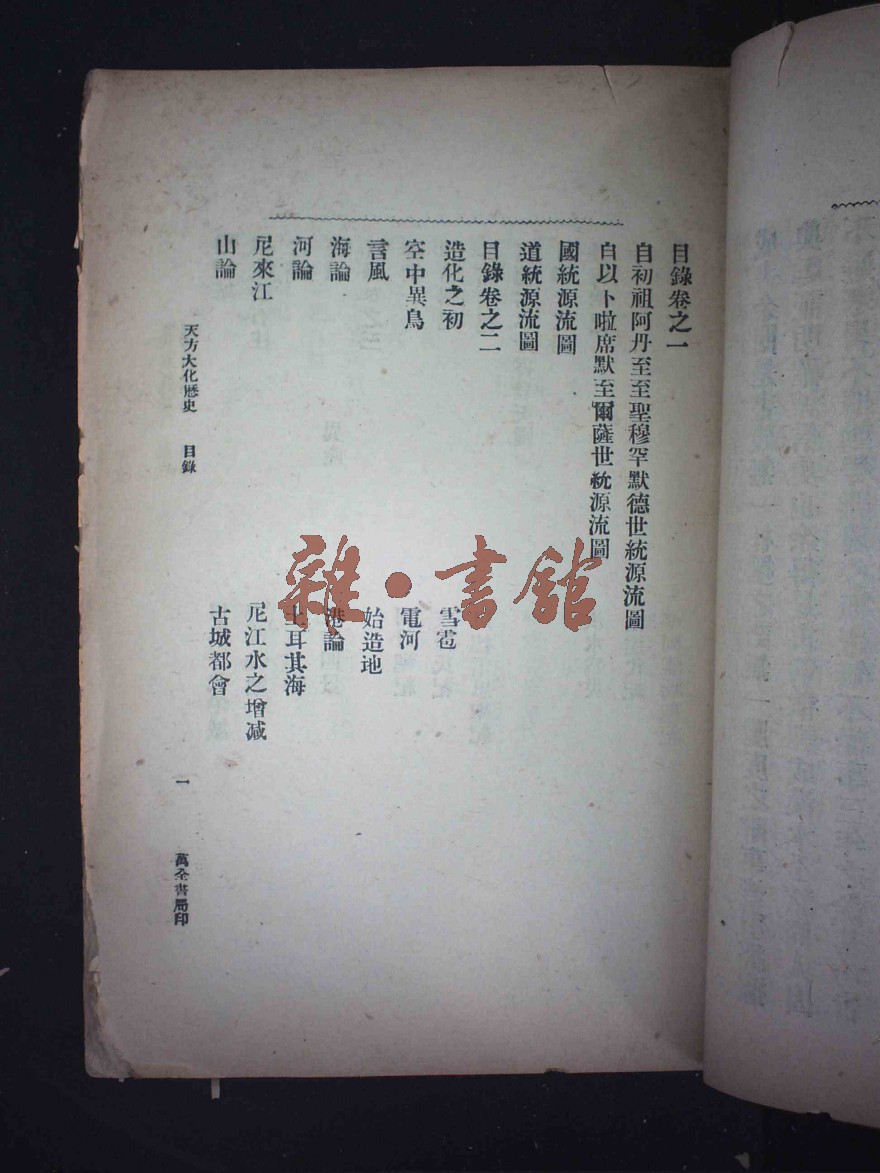 目錄卷之一
自初祖阿丹至至聖穆罕默德世統源流圖
自以卜啦席默至爾薩世統源流圖
國統源流圖
道統源流圖
目錄卷之二
造化之初
雪雹
空中異鳥
電河
言風
始造地
海論
港論
河論
土耳其海
尼來江
尼江水之增减
山論
古城都會
天方大化歷史 目錄 一 萬全書局印
雜·書館